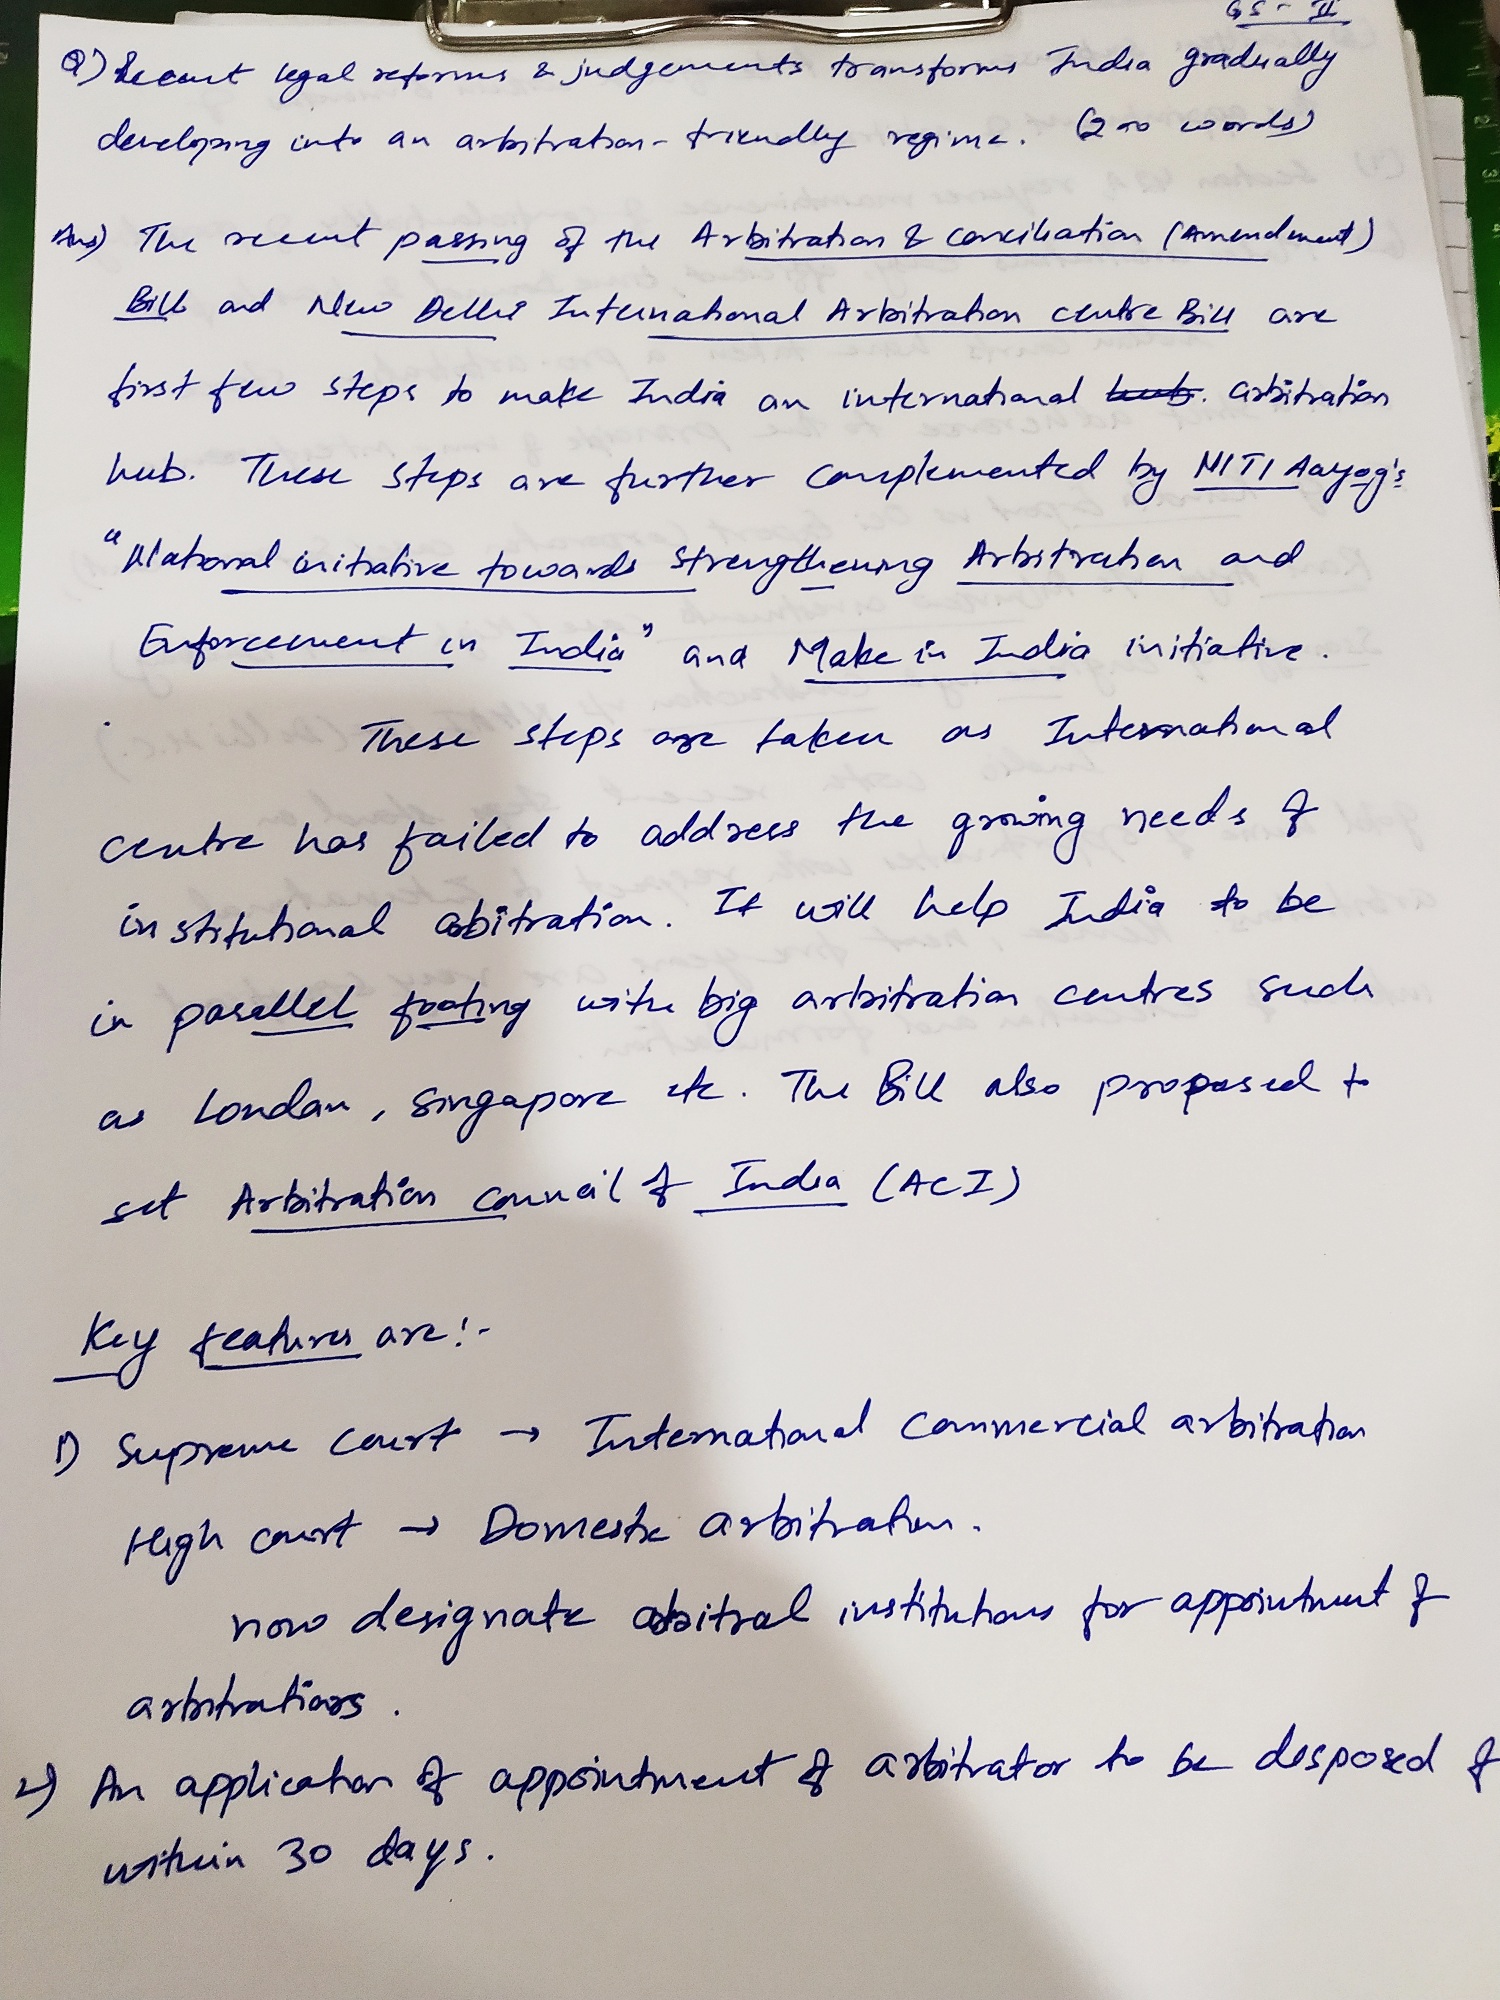 GS - II
Q) Recent legal reforms & judgements transforms India gradually
developing into an arbitration-friendly regime. (200 words)
Ans) The recent passing of the Arbitration & Conciliation (Amendment)
Bill and New Delhi International Arbitration centre Bill are
first few steps to make India an international hub. arbitration
hub. These steps are further complemented by NITI Aayog's
"National initiative towards strengthening Arbitration and
Enforcement in India" and Make in India initiative.
These steps are taken as International
centre has failed to address the growing needs of
institutional abitration. It will help India to be
in parallel footing with big arbitration centres such
as London, Singapore etc. The Bill also proposed to
set Arbitration Council of India (ACI)
Key features are:-
1) Supreme Court → International Commercial arbitration
High court → Domestic arbitration.
now designate arbitral institutions for appointment of
arbitrations.
2) An application of appointment of arbitrator to be disposed of
within 30 days.